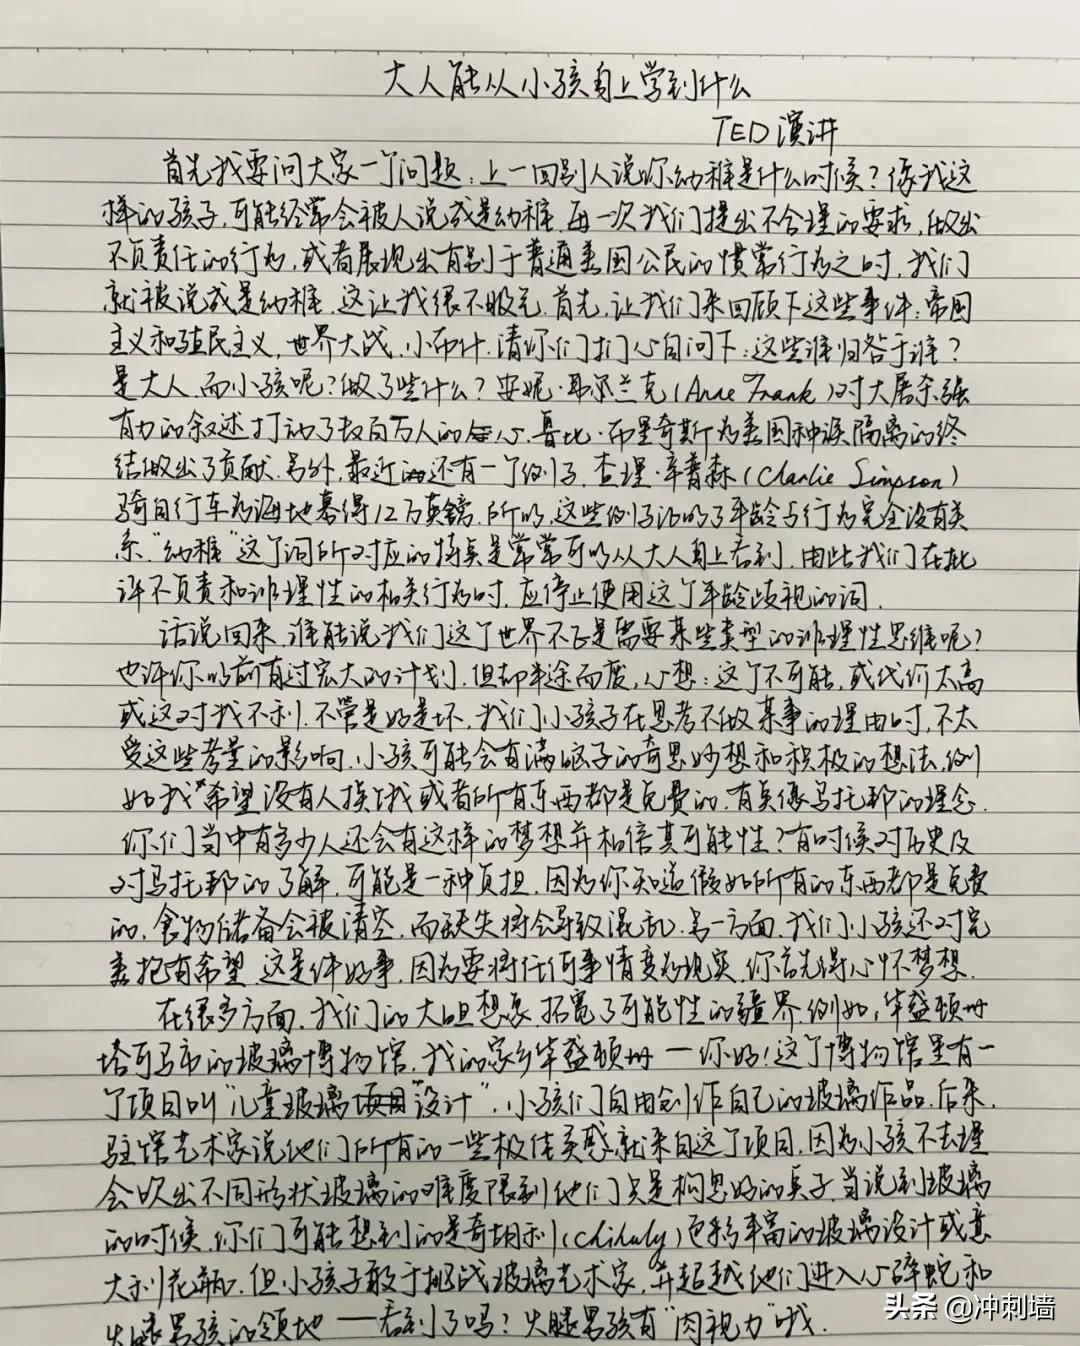 大人能从小孩身上学到什么
TED演讲
首先我要问大家一个问题：上一回别人说你幼稚是什么时候？像我这
样的孩子，可能经常会被人说成是幼稚。每一次我们提出不合理的要求，做出
不负责任的行为，或者展现出有别于普通美国公民的惯常行为之时，我们
就被说成是幼稚。这让我很不服气。首先，让我们来回顾下这些事件：帝国
主义和殖民主义，世界大战，小布什。请你们扪心自问下：这些谁归咎于谁？
是大人。而小孩呢？做了些什么？安妮·弗兰克(Anne Frank)对大屠杀强
有力的叙述打动了数百万人的心。鲁比·布里奇斯为美国种族隔离的终
结做出了贡献。另外，最近还有一个例子，查理·辛普森(Charlie Simpson)
骑自行车为海地募得12万英镑。所以，这些例子证明了年龄与行为完全没有关
系。"幼稚"这个词所对应的特点是常常可以从大人身上看到，由此我们在批
评不负责和非理性的相关行为时，应停止使用这个年龄歧视的词。
话说回来，谁能说我们这个世界不正是需要某些类型的非理性思维呢？
也许你以前有过宏大的计划，但却半途而废，心想：这个不可能，或代价太高
或这对我不利。不管是好是坏，我们小孩子在思考不做某事的理由时，不太
受这些考量的影响。小孩可能会有满脑子的奇思妙想和积极的想法，例
如我希望没有人挨饿或者所有东西都是免费的，有点像乌托邦的理念。
你们当中有多少人还会有这样的梦想并相信其可能性？有时候对历史及
对乌托邦的了解，可能是一种负担，因为你知道假如所有的东西都是免费
的，食物储备会被清空，而缺失将会导致混乱。另一方面，我们小孩还对完
美抱有希望。这是件好事，因为要将任何事情变为现实，你首先得心怀梦想。
在很多方面，我们的大胆想象拓宽了可能性的疆界。例如，华盛顿州
塔可马市的玻璃博物馆，我的家乡华盛顿州——你好！这个博物馆里有一
个项目叫"儿童玻璃设计"，小孩们自由创作自己的玻璃作品。后来，
驻馆艺术家说他们所有的一些极佳灵感就来自这个项目，因为小孩不去理
会吹出不同形状玻璃的难度限制他们只是构思好的点子。当说到玻璃
的时候，你们可能想到的是奇胡利(Chihuly)色彩丰富的玻璃设计或意
大利花瓶，但小孩子敢于挑战玻璃艺术家，并超越他们进入心碎蛇和
火腿男孩的领地——看到了吗？火腿男孩有"肉视力"哦。
头条 @冲刺墙